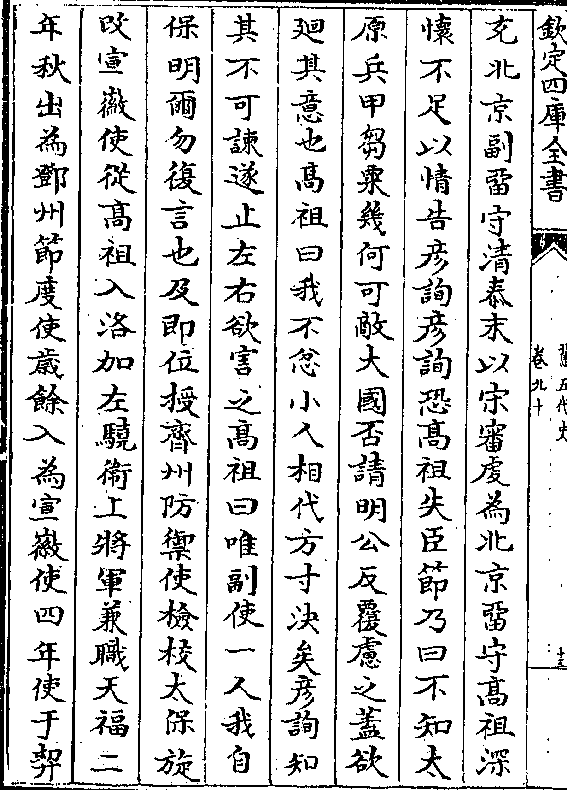 欽定四庫全書
舊五代史
卷九十
十三
充北京副留守清泰末以宋審虔為北京留守高祖深
懷不足以情告彦詢彦詢恐高祖失臣節乃曰不知太
原兵甲芻粟幾何可敵大國否請明公反覆慮之蓋欲
廻其意也高祖曰我不忿小人相代方寸決矣彦詢知
其不可諫遂止左右欲害之高祖曰唯副使一人我自
保明爾勿復言也及即位授齊州防禦使檢校太保旋
改宣徽使從高祖入洛加左驍衛上將軍兼職天福二
年秋出為鄧州節度使歲餘入為宣徽使四年使于契